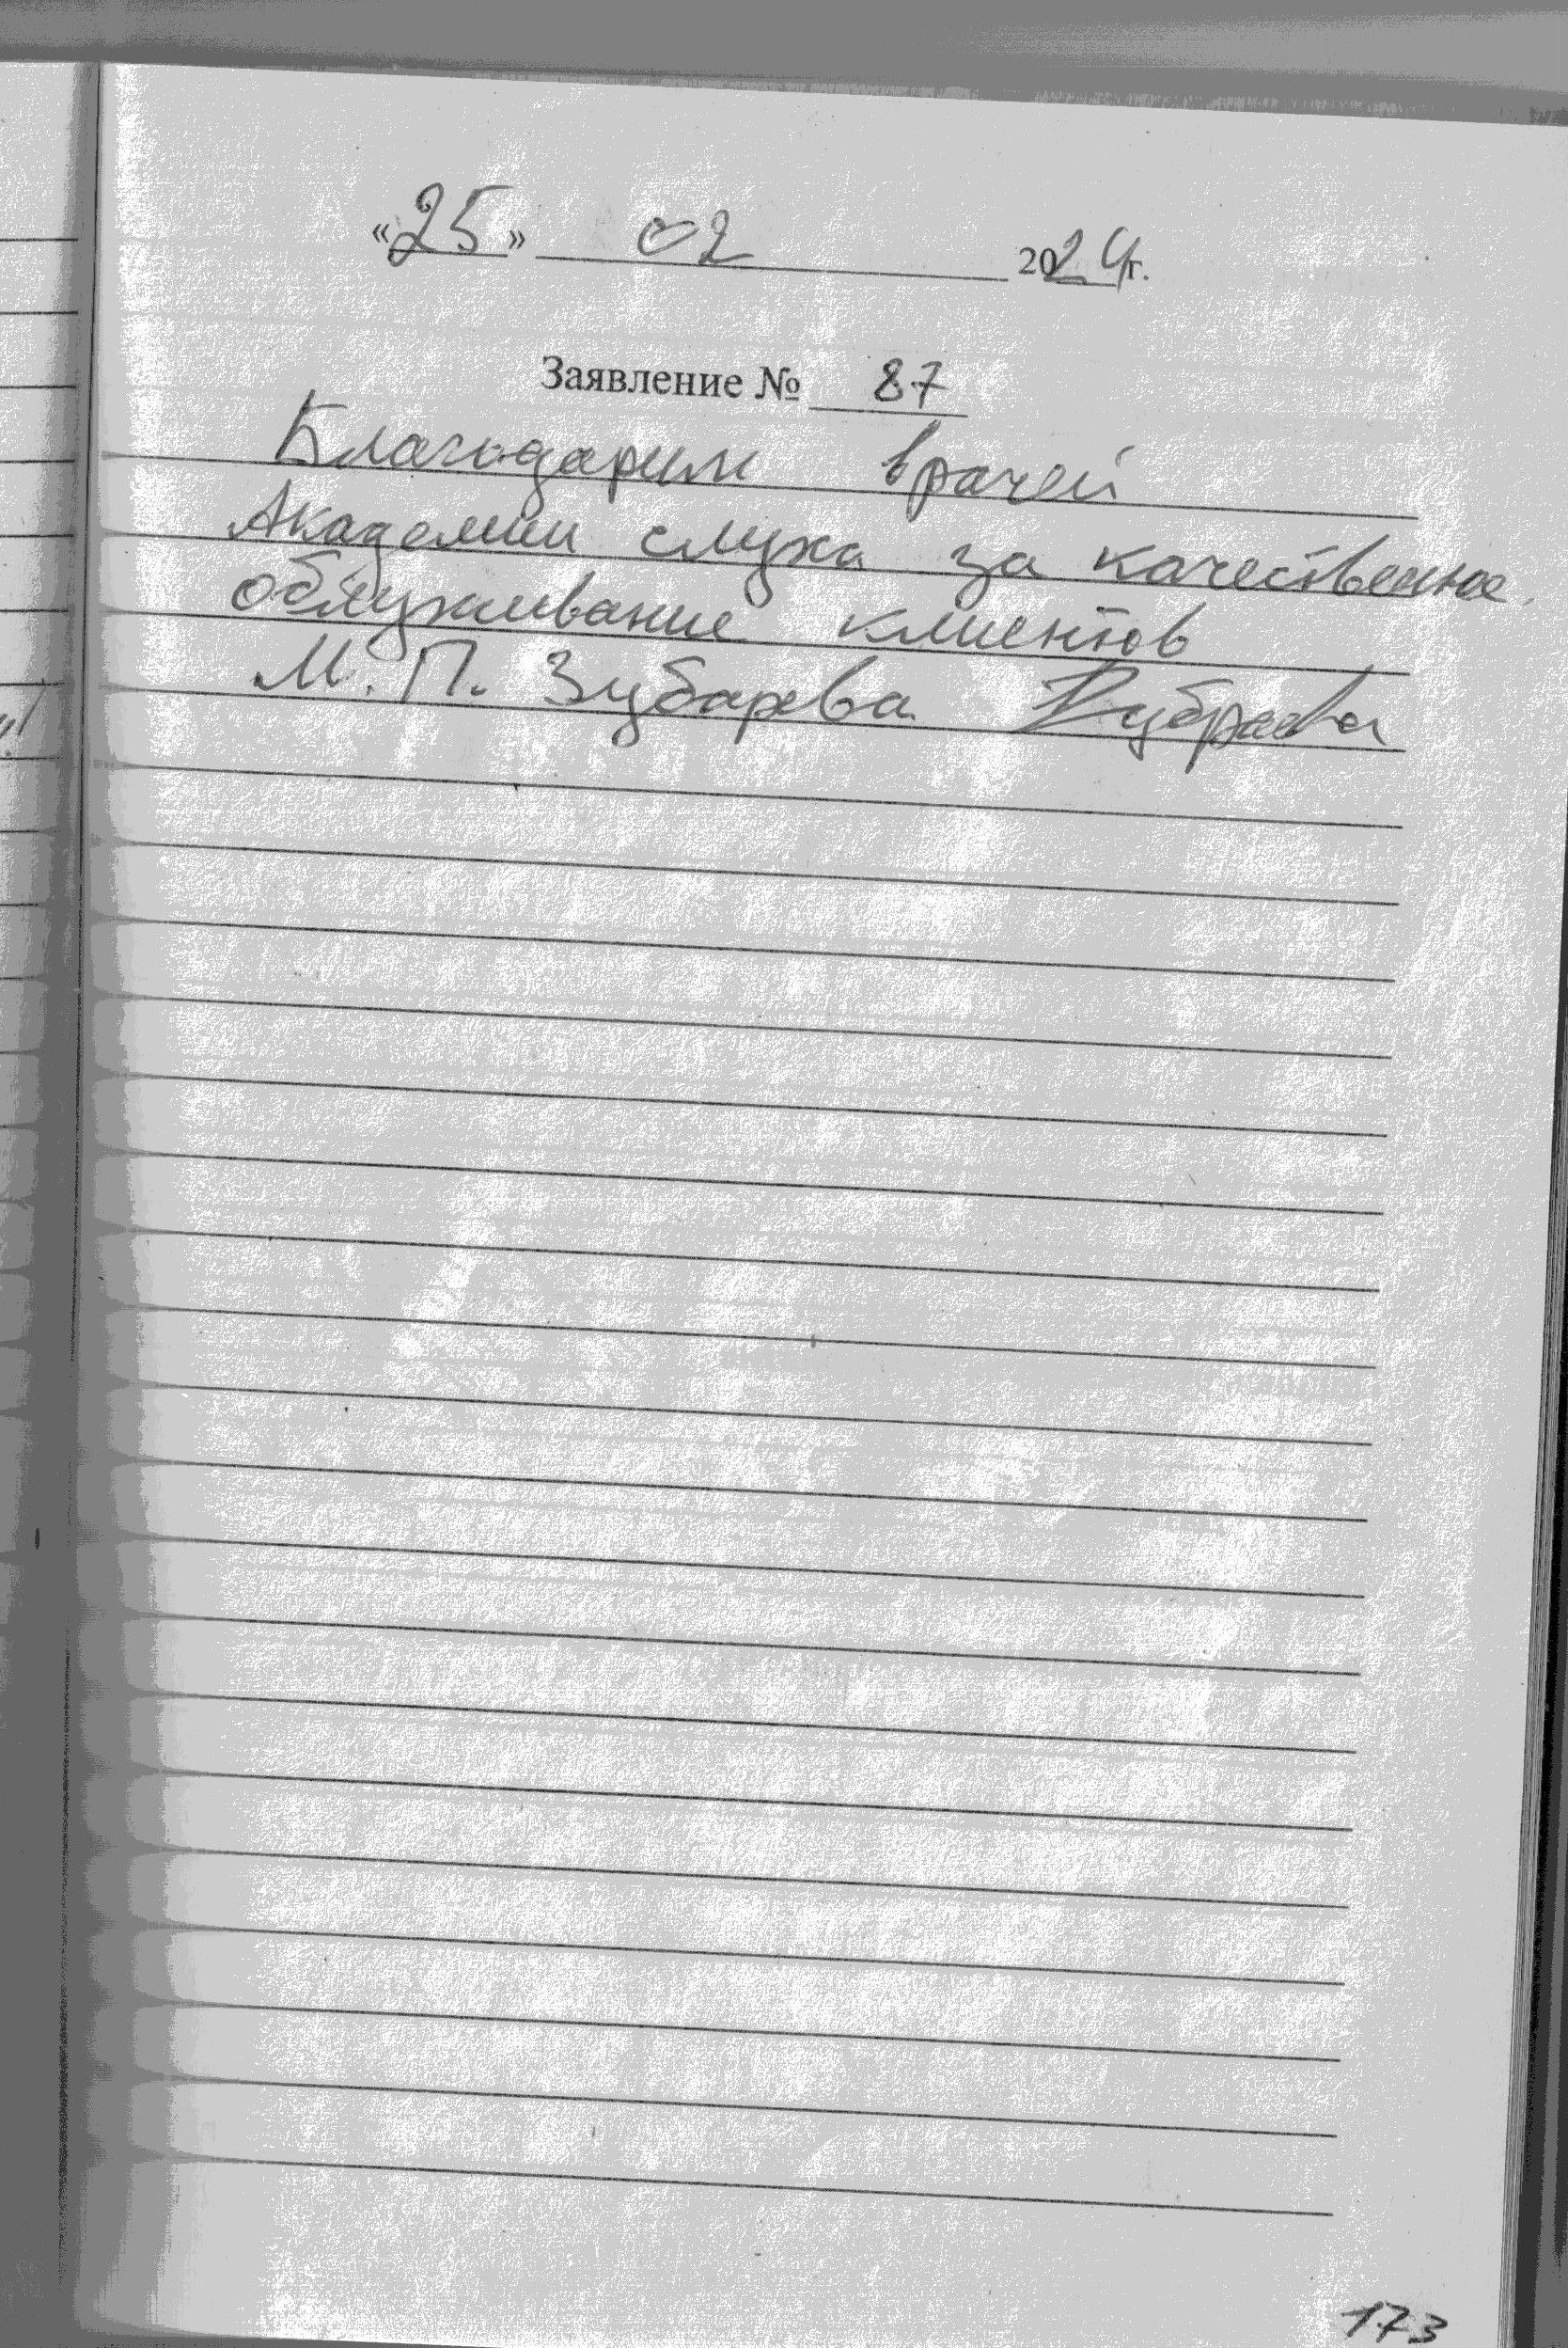 «25» 02 2024г.
Заявление № 87
Благодарим врачей
Академии слуха за качественное
обслуживание клиентов
М. П. Зубарева
173